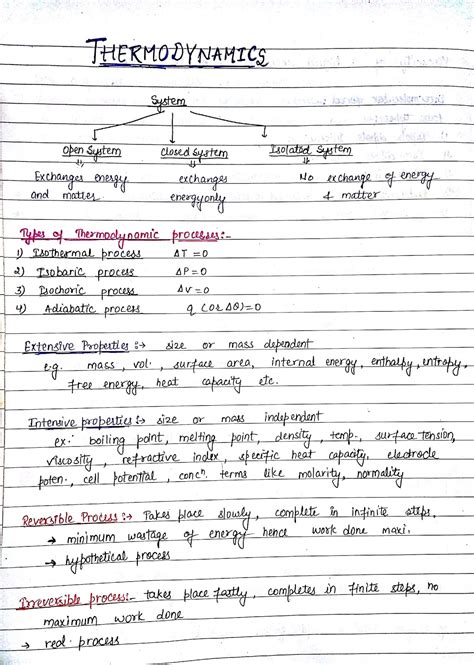 THERMODYNAMICS
System
Open System Closed System Isolated System
Exchanges energy exchanges No exchange of energy
and matter energy only & matter
Types of Thermodynamic processes:-
1) Isothermal process ΔT = 0
2) Isobaric process ΔP = 0
3) Isochoric process Δv = 0
4) Adiabatic process q (or ΔQ) = 0
Extensive Properties :→ size or mass dependent
e.g. mass, vol., surface area, internal energy, enthalpy, entropy,
free energy, heat capacity etc.
Intensive properties :→ size or mass independent
ex: boiling point, melting point, density, temp., surface tension,
viscosity, refractive index, specific heat capacity, electrode
poten., cell potential, concn. terms like molarity, normality
Reversible Process :→ Takes place slowly, complete in infinite steps.
→ minimum wastage of energy hence work done maxi.
→ hypothetical process
Irreversible process:- takes place fastly, completes in finite steps, no
maximum work done
→ real process